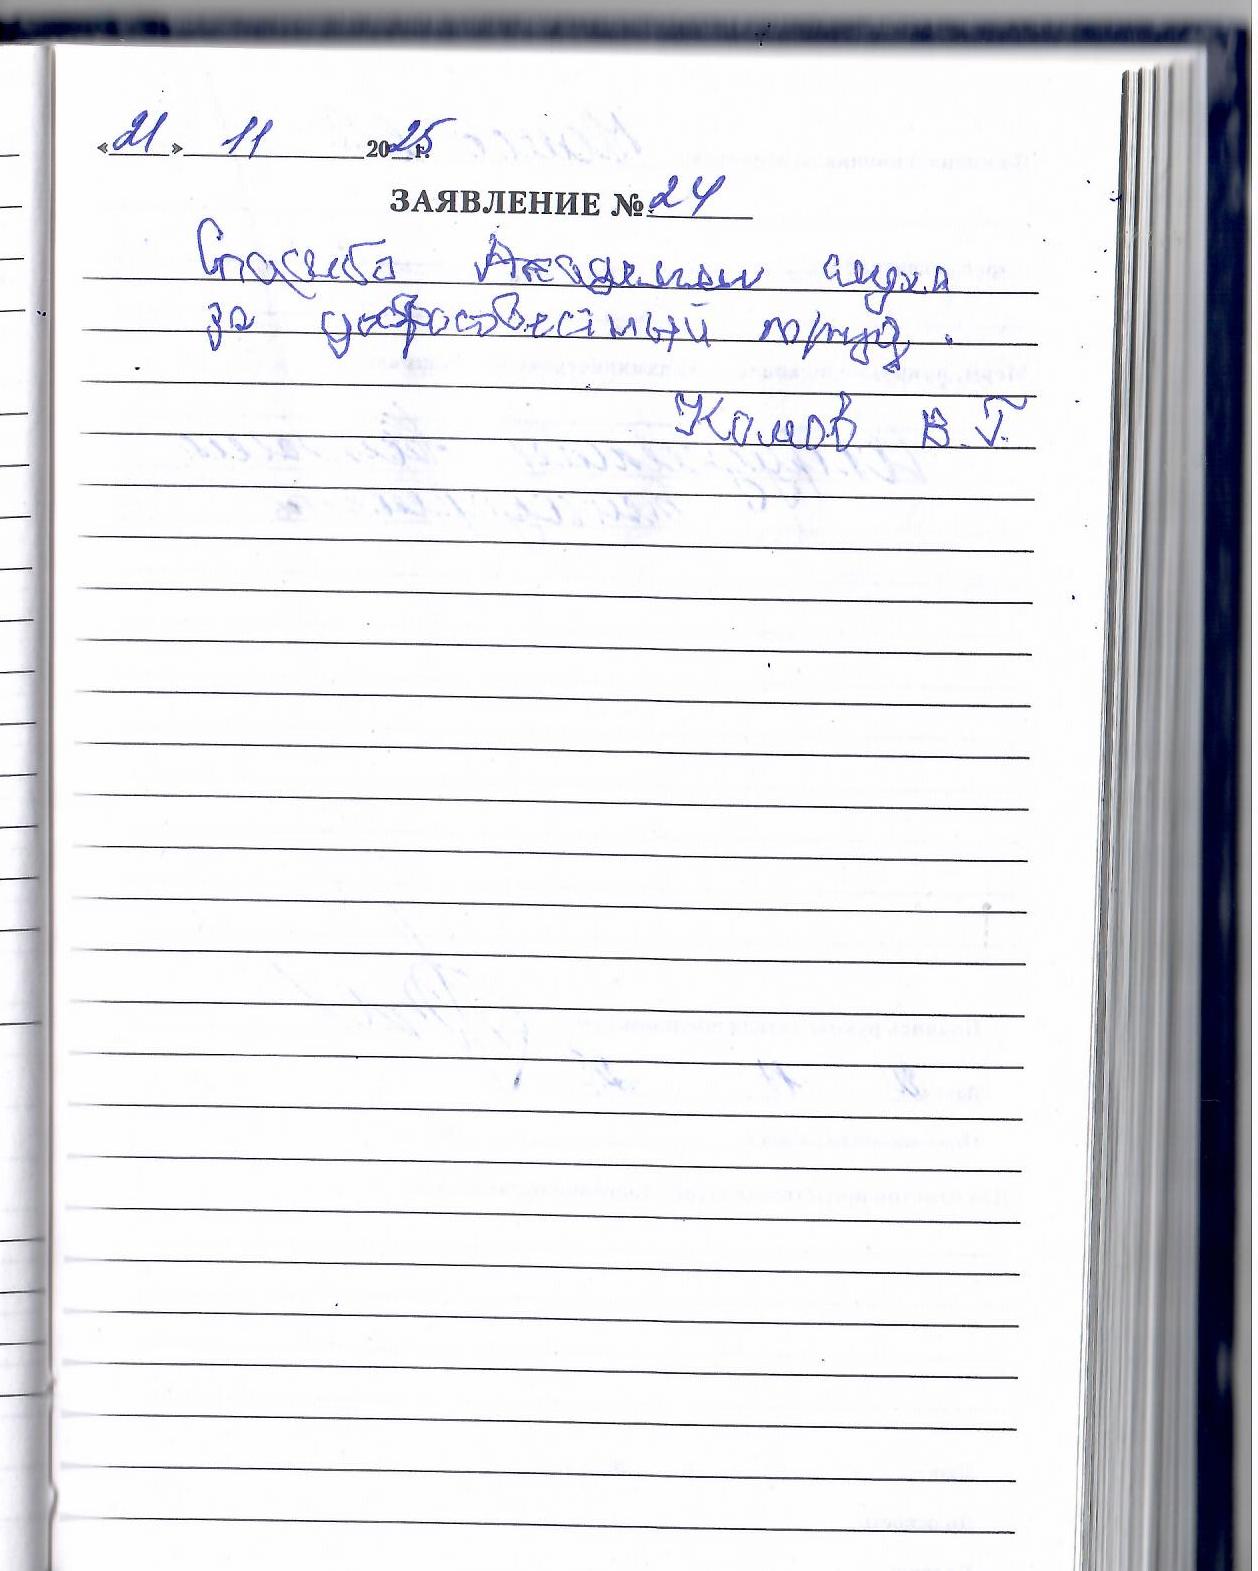 «21» 11 2025 г.
ЗАЯВЛЕНИЕ № 24
Спасибо Академии слуха
за добросовестный труд.
Комов В.Г.